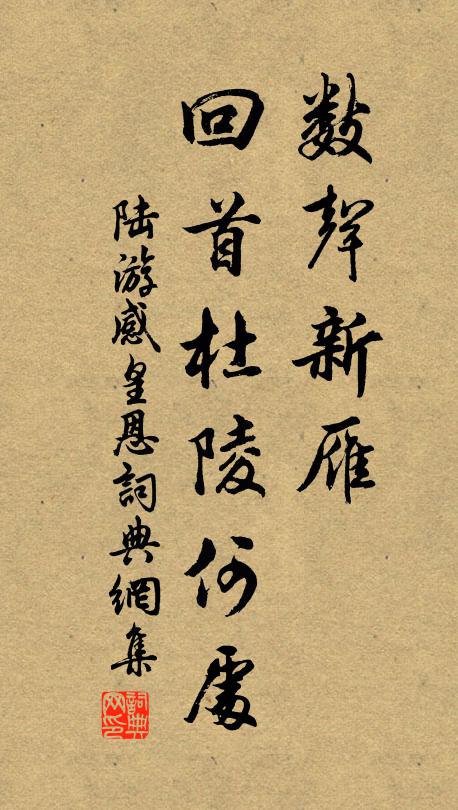 数聲新雁
回首杜陵何處
陆游感皇恩詞典網集
詞典网印